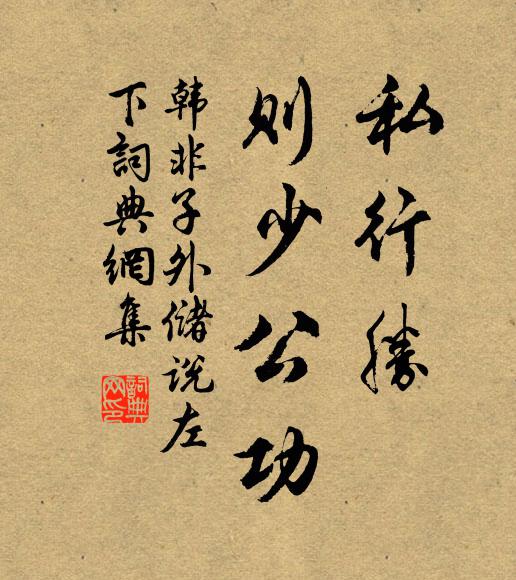 私行勝
則少公功
韩非子外儲说左
下詞典網集
詞典
网印